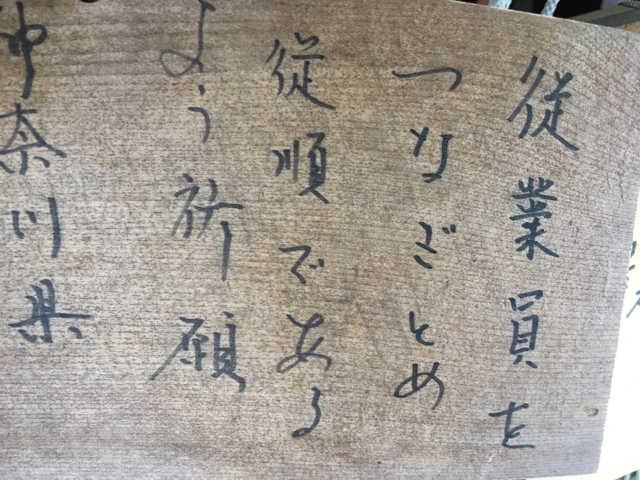 従業員を
つなぎとめ
従順である
よう祈願
神奈川県